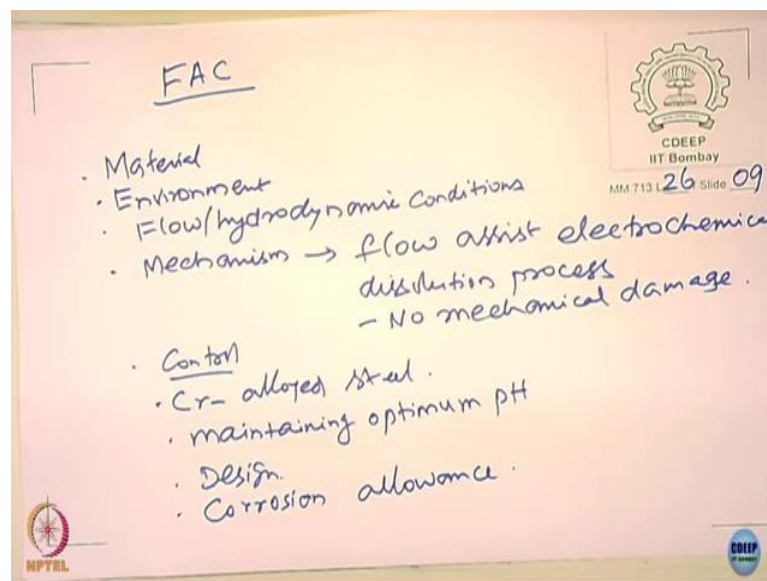 FAC
CDEEP
IIT Bombay
MM 713 L 26 Slide 09
· Material
· Environment
· Flow/hydrodynamic conditions
· Mechanism → flow assist electrochemica
dissolution process
- No mechanical damage.
· Control
· Cr- alloyed steel.
· maintaining optimum pH
· Design.
· Corrosion allowance.
NPTEL
CDEEP
IIT BOMBAY